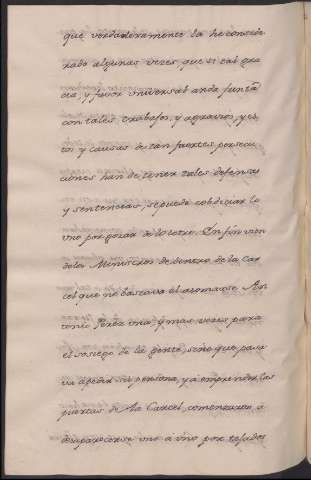 que verdaderamente la he conside
rado algunas vezes, que si tal gra
cia, y favor universal anda junta
con tales trabajos, y agravios, y es
tos y causas de tan fuertes persecu
ciones han de tener tales defensas
y sentencias, se puede cobdiciar lo
uno por gozar de lo otro. En fin vien
do los Ministros de dentro de la Car
cel que no bastava el asomarse An
tonio Perez una y mas vezes para
el sosiego de la gente, sino que pasa
va a pedir su persona, y a emprender las
puertas de la Carcel, comenzaron a
desaparecerse uno a uno por tejados